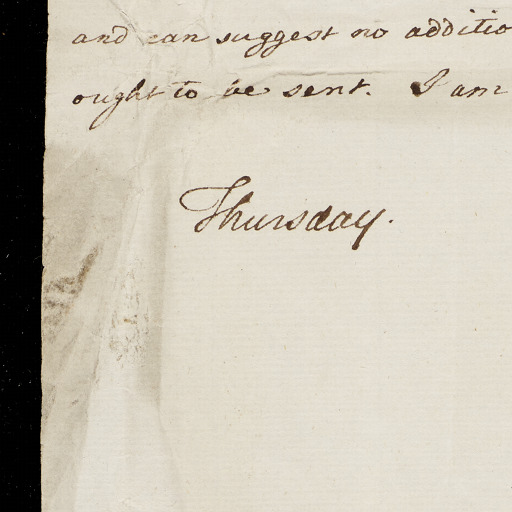 and can suggest no additio
ought to be sent. I am
Thursday.